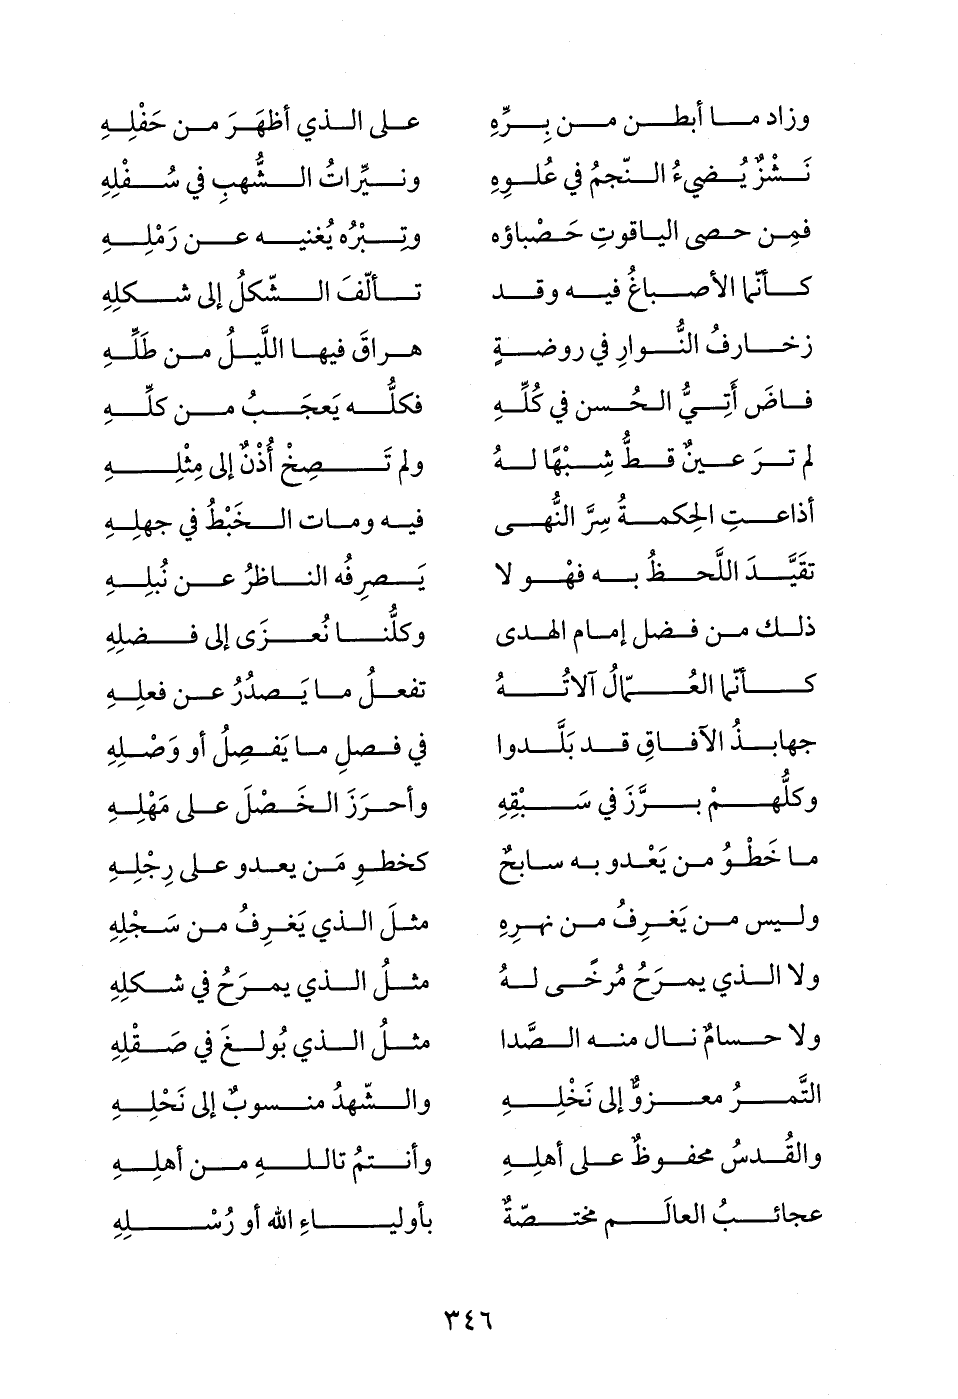 وزاد ما أبطن من بِرِّهِ على الذي أظهَرَ من حَفْلِهِ
نَشْزٌ يُضيءُ النّجمُ في عُلوِهِ ونيِّراتُ الشُّهبِ في سُفْلِهِ
فمِن حصى الياقوتِ حَصْباؤه وتِبْرُه يُغنيه عن رَمْلِهِ
كأنّما الأصباغُ فيه وقد تألّفَ الشّكلُ إلى شكلِهِ
زخارفُ النُّوارِ في روضةٍ هراقَ فيها اللَّيلُ من طَلِّهِ
فاضَ أَتِيُّ الحُسن في كُلِّهِ فكلُّه يَعجَبُ من كلِّهِ
لم ترَ عينٌ قطُّ شِبْهًا لهُ ولم تَصِخْ أُذْنٌ إلى مِثْلِهِ
أذاعتِ الحِكمةُ سِرَّ النُّهى فيه ومات الخَبْطُ في جهلِهِ
تقيَّدَ اللَّحظُ به فهْو لا يَصرِفُه الناظرُ عن نُبلِهِ
ذلك من فضل إمام الهدى وكلُّنا نُعزَى إلى فضلِهِ
كأنّما العُمّالُ آلاتُهُ تفعلُ ما يَصدُرُ عن فعلِهِ
جهابذُ الآفاقِ قد بَلَّدوا في فصلِ ما يَفصِلُ أو وَصْلِهِ
وكلُّهمْ برَّزَ في سَبْقِهِ وأحرَزَ الخَصْلَ على مَهْلِهِ
ما خَطْوُ من يَعْدو به سابحٌ كخطوِ مَن يعدو على رِجْلِهِ
وليس من يَغرِفُ من نهرِهِ مثلَ الذي يَغرِفُ من سَجْلِهِ
ولا الذي يمرَحُ مُرخًى لهُ مثلُ الذي يمرَحُ في شكلِهِ
ولا حسامٌ نال منه الصَّدا مثلُ الذي بُولغَ في صَقْلِهِ
التَّمرُ معزوٌّ إلى نَخْلِهِ والشّهدُ منسوبٌ إلى نَحْلِهِ
والقُدسُ محفوظٌ على أهلِهِ وأنتمُ تالله من أهلِهِ
عجائبُ العالَم مختصّةٌ بأولياءِ الله أو رُسْلِهِ
٣٤٦